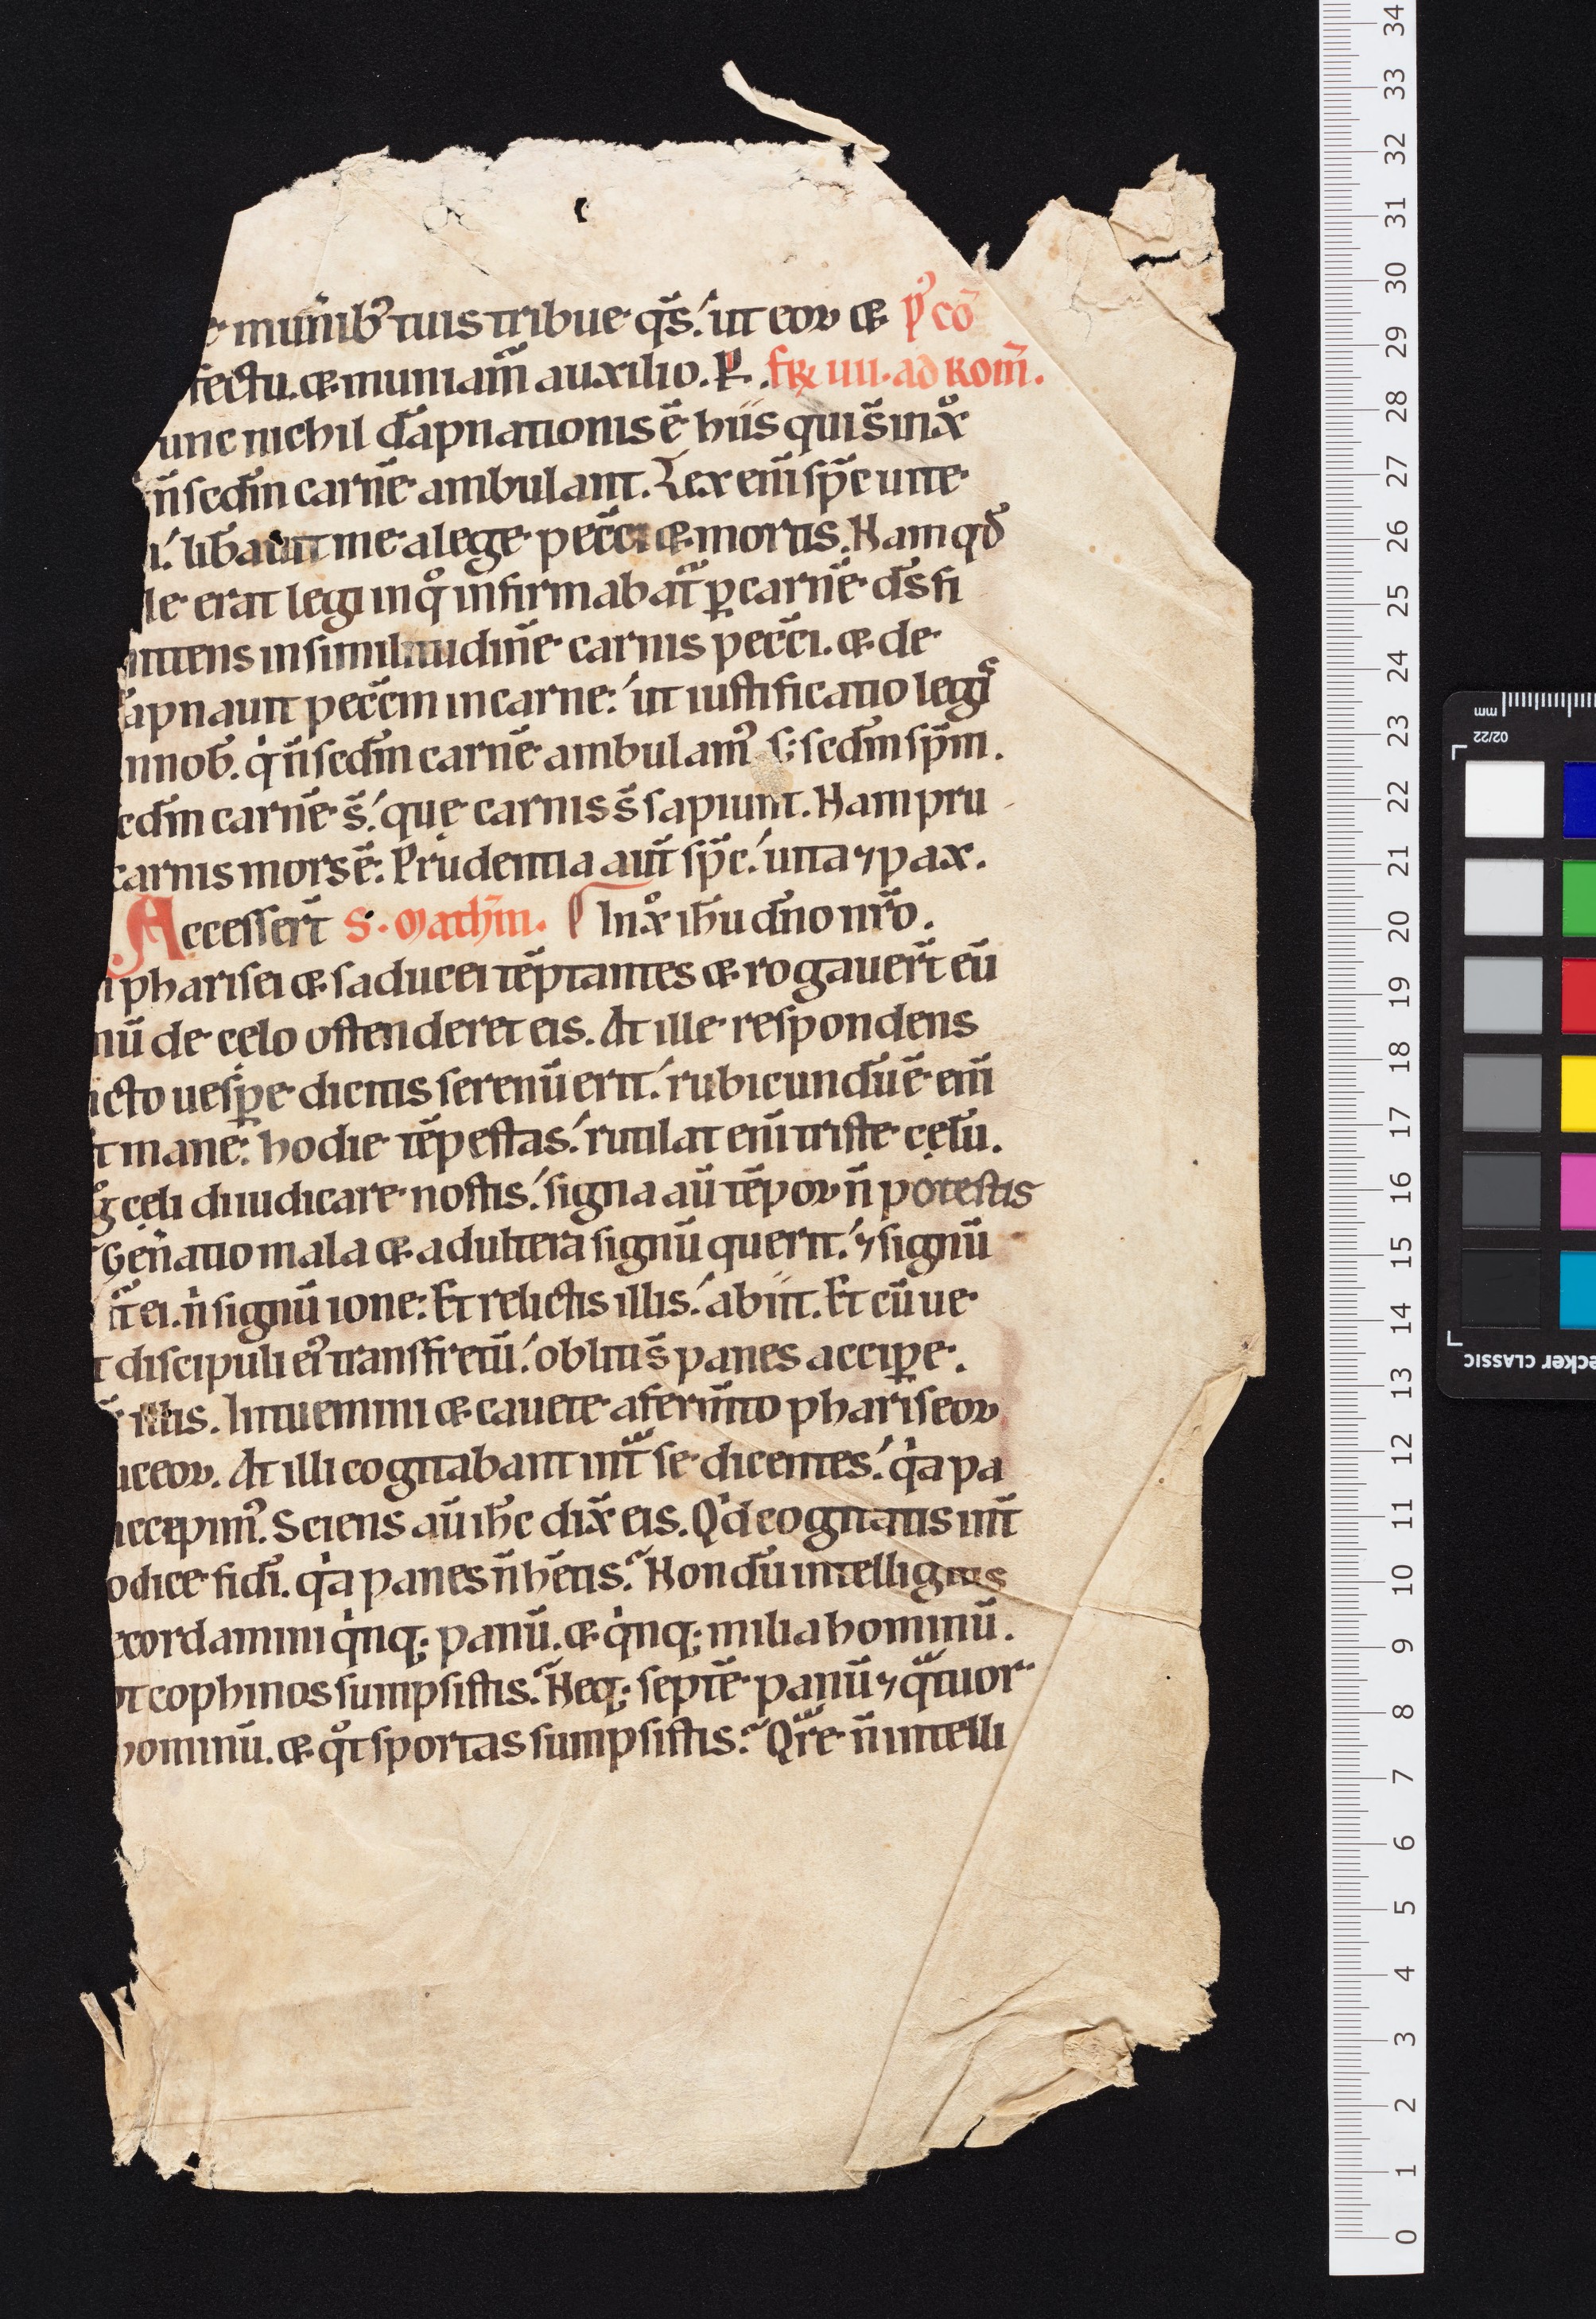 munib᷒ tuis tribue q̄s. ut eoꝝ & p᷒ cō
fectu. & muniam̄ auxilio. P. fr̄ iiii. ad Rom̄.
unc nichil dāpnationis ē hiis qui s̄ in xͦ
n̄ scd̄m carnē ambulant. Lex enī sp̄c uite
i. lib̄auit me a lege pecc̄i & mortis. Nam qd̄
le erat legi in qͦ infirmabat᷑ ꝑ carnē. ds̄ fi
mittens in similitudinē carnis pecc̄i. & de
āpnauit pecc̄m in carne: ut iustificatio legis
in nob̄. qi n̄ scd̄m carnē ambulam᷒ s; scd̄m sp̄m.
cd̄m carnē s̄. quę carnis s̄ sapiunt. Nam pru
carnis mors ē: Prudentia aut̄ sp̄c. uita ⁊ pax.
Accesser̄t S. Math̄m. In xͦ ih̄u dn̄o nr̄o.
pharisei & saducei tēptantes & rogauer̄t eū
nū de celo ostenderet eis. At ille respondens
acto uesꝑe dicitis serenū erit. rubicundū ē enī
t mane: hodie tēpestas. rutilat enī triste cęlū.
g̊ cęli diiudicare nostis. signa aū tēpoꝝ n̄ potestis
Gen̄atio mala & adultera signū querit. ⁊ signū
t᷑ ei. n̄ signū ione: Et relictis illis. abiit. Et cū ue
t discipuli ei᷒ trans fretū. obliti s̄ panes acciꝑe.
illis. Intuemini & cauete a ferm̄to phariseoꝝ
uceoꝝ. At illi cogitabant int̄ se dicentes. qa pa
accepim᷒. Sciens aū ih̄c dix̄ eis. Qid cogitatis int̄
odice fidi. qa panes n̄ hētis. Nondū intelligitis
ecordamini qinq; panū. & qinq; milia hominū.
ot cophinos sumpsistis. Neq; septē panū ⁊ qatuor
hominū. & qͦt sportas sumpsistis. Qr̄e n̄ intelli